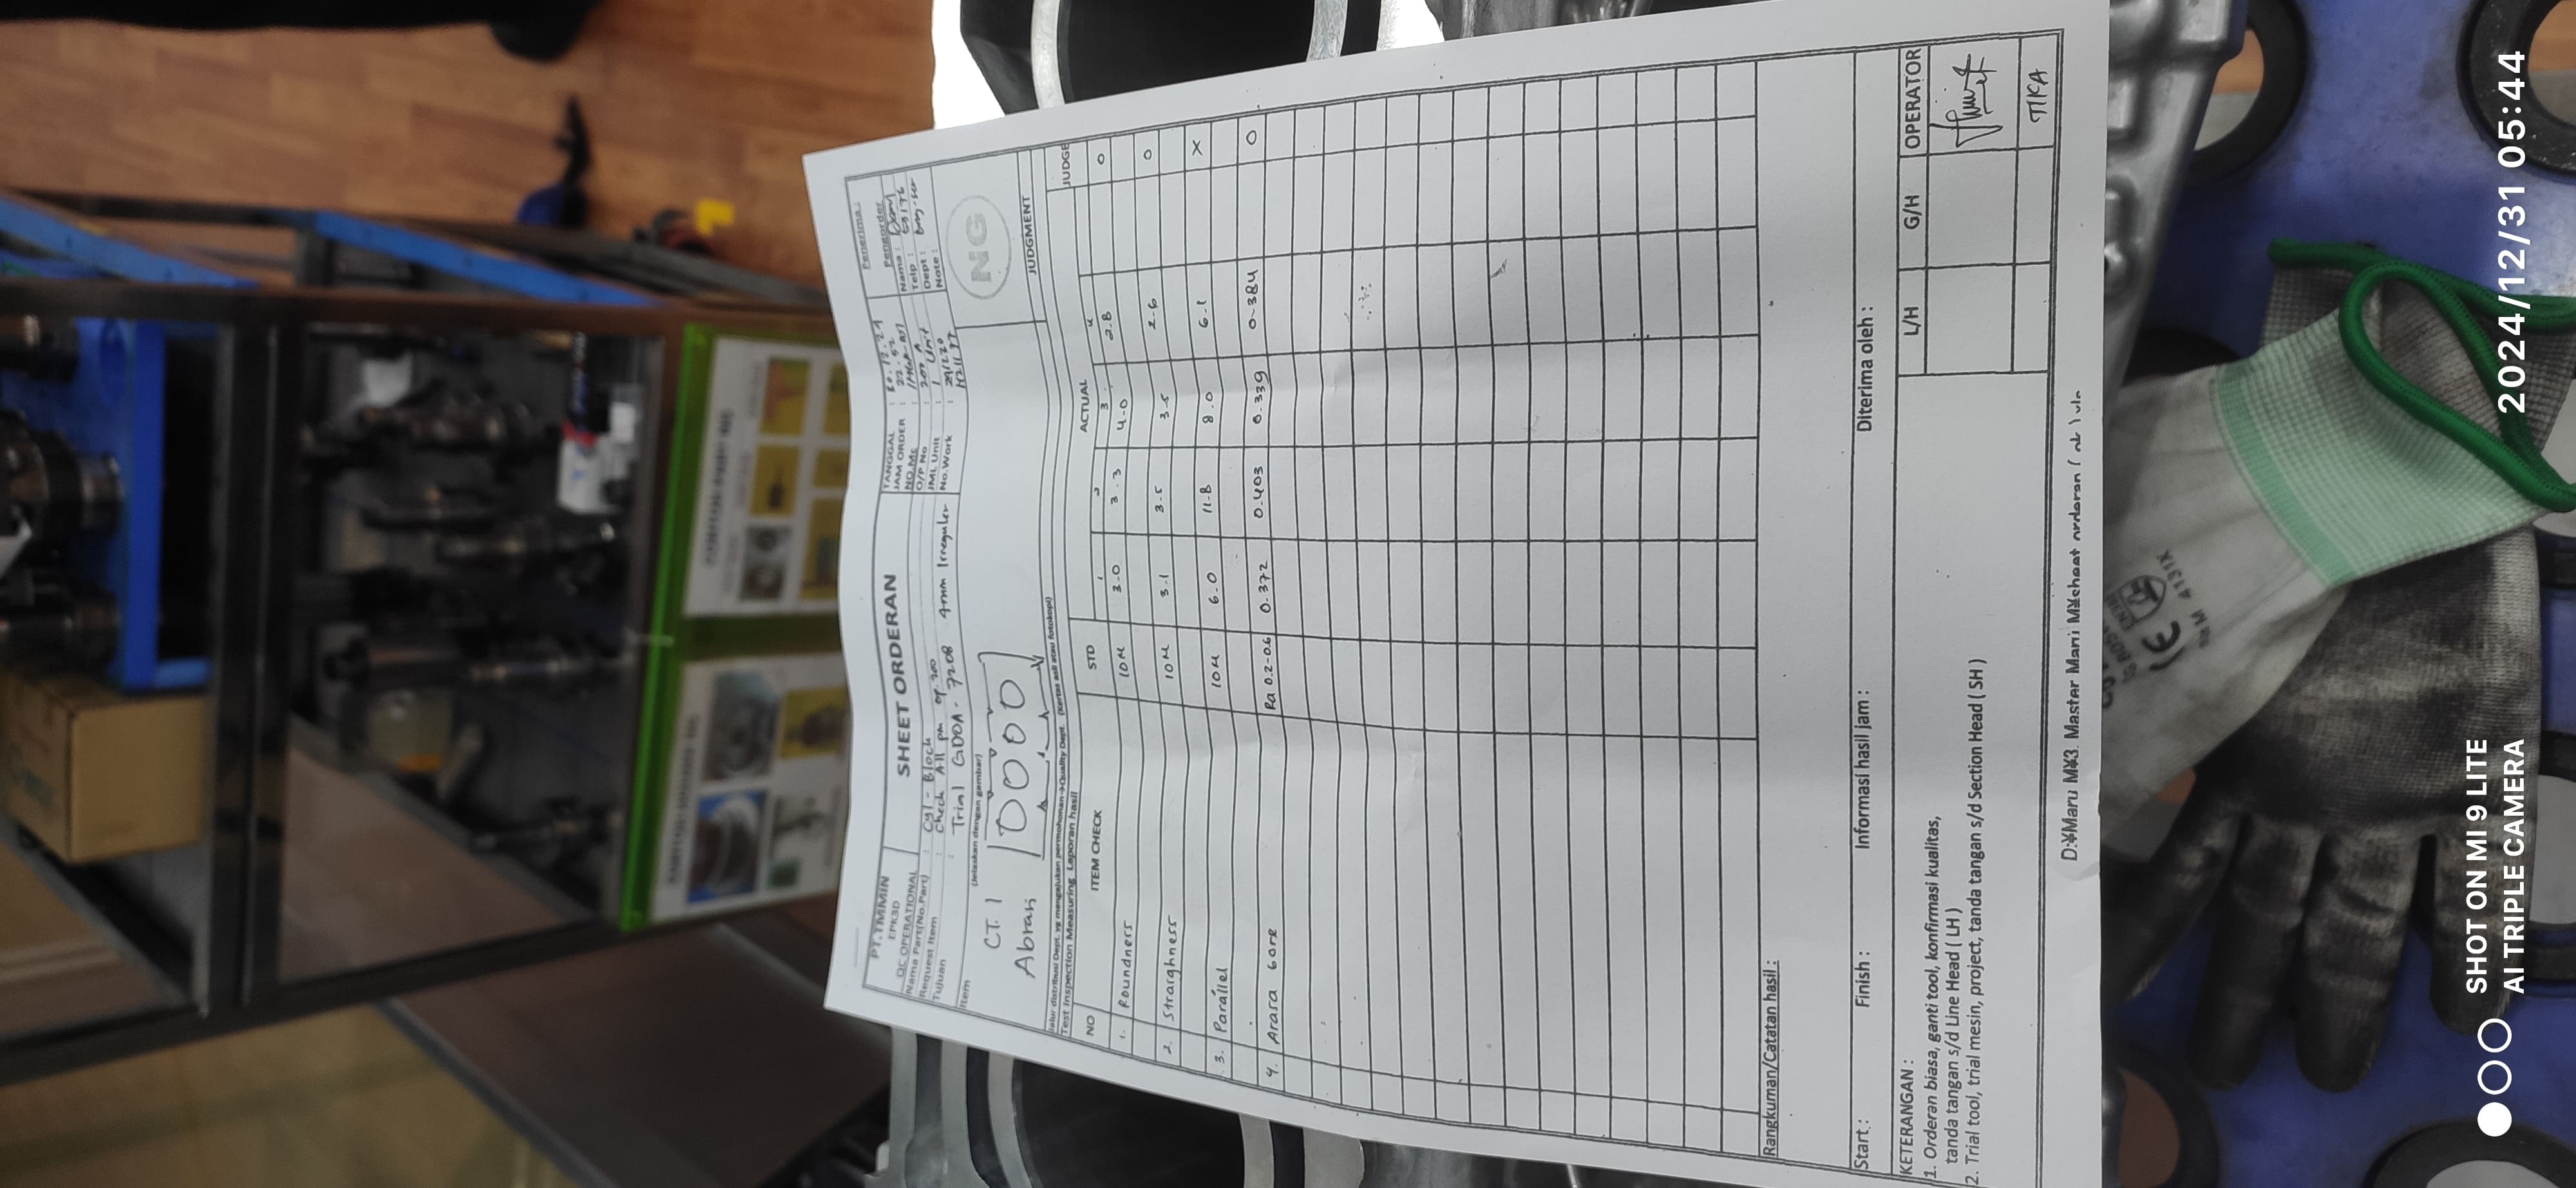 CONTOH HOLDER NG
CONTOH PART NG
PT.TMMIN
EPK3D
QC OPERATIONAL
SHEET ORDERAN
TANGGAL : 30.12.24
JAM ORDER : 22.52
NO.Mc :
O/P No : 200 A
JML Unit : 1 Unit
No.Work : 291220
H21177
Penerima :
Pengorder
Nama :
Telp : 53176
Dept :
Note :
Nama Part(No.Part) : Cyl - Block
Request Item : Check All pm op. 200
Tujuan : Trial GDOA - 7208 4mm Irreguler
Item
(Jelaskan dengan gambar)
CT. 1
Abran
NG
JUDGMENT
Jalur distribusi Dept. yg mengajukan permohonan→Quality Dept. (Kertas asli atau fotokopi)
Test Inspection Measuring Laporan hasil
NO ITEM CHECK STD ACTUAL JUDGE
1 2 3 4
1. Roundness 10M 3.0 3.3 4.0 2.8 O
2. Straighness 10M 3.1 3.5 3.5 2.6 O
3. Parallel 10M 6.0 11.8 8.0 6.1 X
4. Arasa bore Ra 0.2-0.6 0.372 0.403 0.339 0.384 O
Rangkuman/Catatan hasil :
Start : Finish : Informasi hasil jam : Diterima oleh :
KETERANGAN :
1. Orderan biasa, ganti tool, konfirmasi kualitas,
tanda tangan s/d Line Head ( LH )
2. Trial tool, trial mesin, project, tanda tangan s/d Section Head ( SH )
L/H G/H OPERATOR
TIKA
D:¥Maru M¥3. Master Maru M¥sheet orderan ( ok ).xls
CE
EN388
4131X
SHOT ON MI 9 LITE
AI TRIPLE CAMERA
2024/12/31 05:44